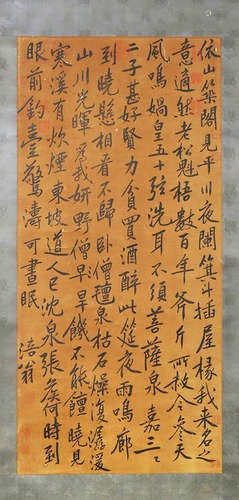 依山築閣見平川夜闌箕斗插屋椽我來名之
意適然老松魁梧數百年斧斤所赦今參天
風鳴媧皇五十弦洗耳不須菩薩泉嘉三
二子甚好賢力貧買酒醉此筵夜雨鳴廊
到曉懸相看不歸臥僧氈泉枯石燥復潺湲
山川光暉為我妍野僧早旱饑不能饘曉見
寒溪有炊煙東坡道人已沈泉張侯何時到
眼前釣臺驚濤可晝眠
涪翁